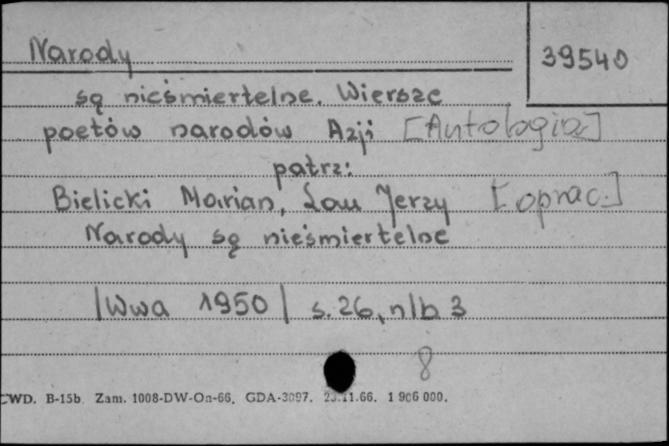 Narody
39540
są nieśmiertelne. Wiersze
poetów narodów Azji [Antologia]
patrz:
Bielicki Marian, Lau Jerzy [oprac.]
Narody są nieśmiertelne
|Wwa 1950| s. 26, nlb 3
8
CWD. B-15b. Zam. 1008-DW-On-66. GDA-3097. 23.11.66. 1 906 000.